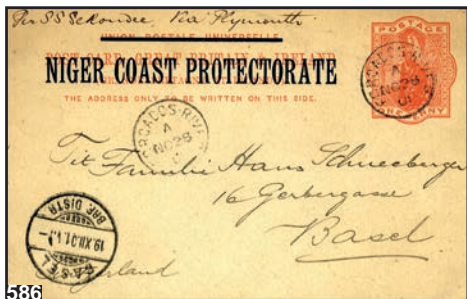 Per SS Sekondee, Via Plymouth
UNION POSTALE UNIVERSELLE
POST CARD GREAT BRITAIN IRELAND
NIGER COAST PROTECTORATE
THE ADDRESS ONLY TO BE WRITTEN ON THIS SIDE.
POSTAGE
ONE PENNY
FORCADOS-RIVER
A
NO 28
01
FORCADOS-RIVER
A
NO 28
01
Tit Familie Hans Schneeberger
16 Gerbergasse
Basel
BASEL
19.XII.01
BRF. DISTR
586